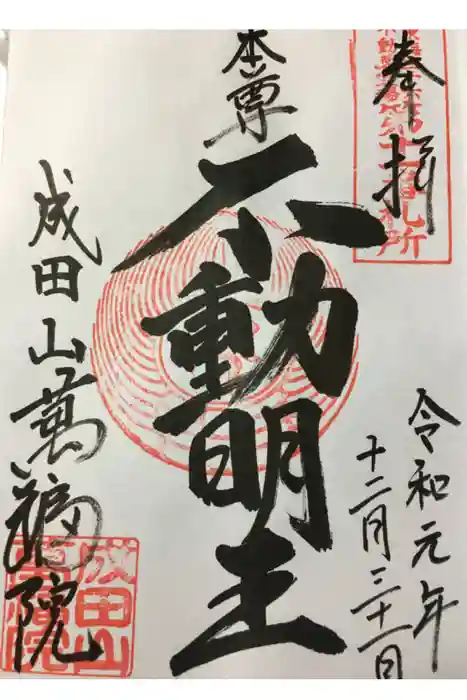 奉拝
令和元年
十二月三十一日
本尊
不動明王
成田山萬福院
成田山
萬福院